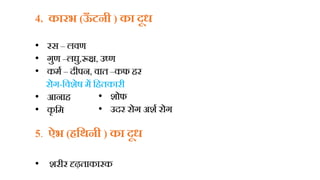 4. कारभ (ऊँटनी ) का दूध
• रस – लवण
• गुण –लघु,रूक्ष, उष्ण
• कर्म – दीपन, वात –कफ हर
रोग-विशेष में हितकारी
• आनाह • शोफ
• कृमि • उदर रोग अर्श रोग
5. ऐभ (हथिनी ) का दूध
• शरीर दृढ़ताकारक